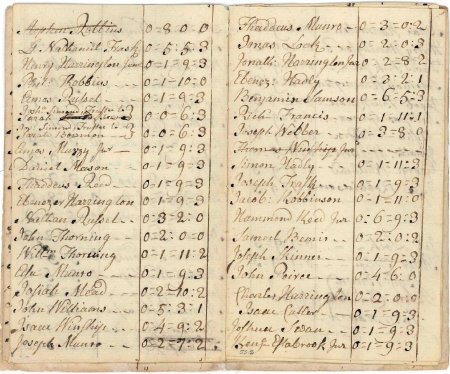 Robbins 0=8=0=0
Lt Nathaniel Trask 0=5=5=3
Henry Harrington Junr 0=1=9=3
Philp Robbins 0=1=10=0
Amos Russel 0=1=9=3
0=0=6=3
0=0=6=3
Amos Muzzy Jur 0=1=9=3
Daniel Mason 0=1=9=3
Thaddeus Reed 0=1=9=3
Ebenezer Harrington 0=1=9=3
Nathan Russel 0=3=2=0
John Thorning 0=2=0=0
Willm Thorning 0=1=11=2
Munro 0=1=9=3
Josiah Mead 0=2=10=2
John Williams 0=5=3=1
Isaac Winship 0=4=9=2
Joseph Munro 0=2=7=2
Thaddeus Munro 0=3=0=2
Jonas Lock 0=2=0=3
Jonath Harrington Jur 0=2=8=2
Ebenezr Hadly 0=3=2=1
Benjamin Samson 0=6=5=3
Francis 0=1=11=1
Joseph Webber 0=3=8=0
Simon Hadly 0=1=11=3
Joseph Trask 0=1=9=3
Jacob Robbinson 0=1=11=0
Hammond Reed Jur 0=6=9=3
Samuel Bemis 0=2=0=2
Joseph Skinner 0=1=9=3
John Peirce 0=4=6=0
Charles Harrington 0=2=0=0
Isaac Cutler 0=1=9=3
Joshua Swan 0=1=9=3
Benj Estabrook Jur 0=1=9=3